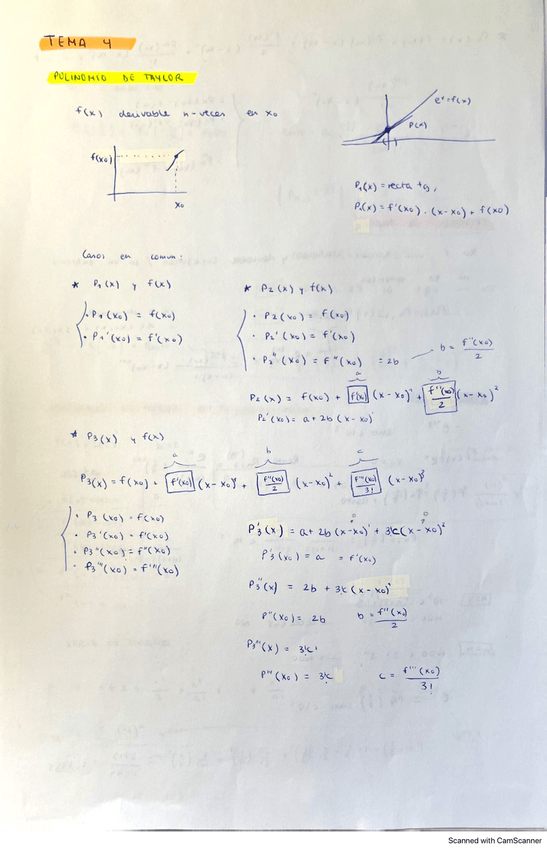 TEMA 4
POLINOMIO DE TAYLOR
f(x) derivable n-veces en x₀
eˣ = f(x)
P(x)
f(x₀)
x₀
P₁(x) = recta tg,
P₁(x) = f'(x₀) · (x-x₀) + f(x₀)
Casos en común:
* P₁(x) y f(x)
· P₁(x₀) = f(x₀)
· P₁'(x₀) = f'(x₀)
* P₂(x) y f(x)
· P₂(x₀) = f(x₀)
· P₂'(x₀) = f'(x₀)
· P₂''(x₀) = f''(x₀) = 2b
b = f''(x₀)/2
a b
P₂(x) = f(x₀) + f(x₀) (x-x₀)' + f''(x₀)/2 (x-x₀)²
P₂'(x₀) = a + 2b (x-x₀)'
* P₃(x) y f(x)
a b c
P₃(x) = f(x₀) + f'(x₀) (x-x₀) + f''(x₀)/2 (x-x₀)² + f'''(x₀)/3! (x-x₀)³
· P₃(x₀) = f(x₀)
· P₃'(x₀) = f'(x₀)
· P₃''(x₀) = f''(x₀)
· P₃'''(x₀) = f'''(x₀)
0 0
P₃'(x) = a + 2b (x-x₀)' + 3c (x-x₀)²
P₃'(x₀) = a = f'(x₀)
P₃''(x) = 2b + 3!c (x-x₀)
P''(x₀) = 2b b = f''(x₀)/2
P₃'''(x) = 3!c
P'''(x₀) = 3!c c = f'''(x₀)/3!
Scanned with CamScanner